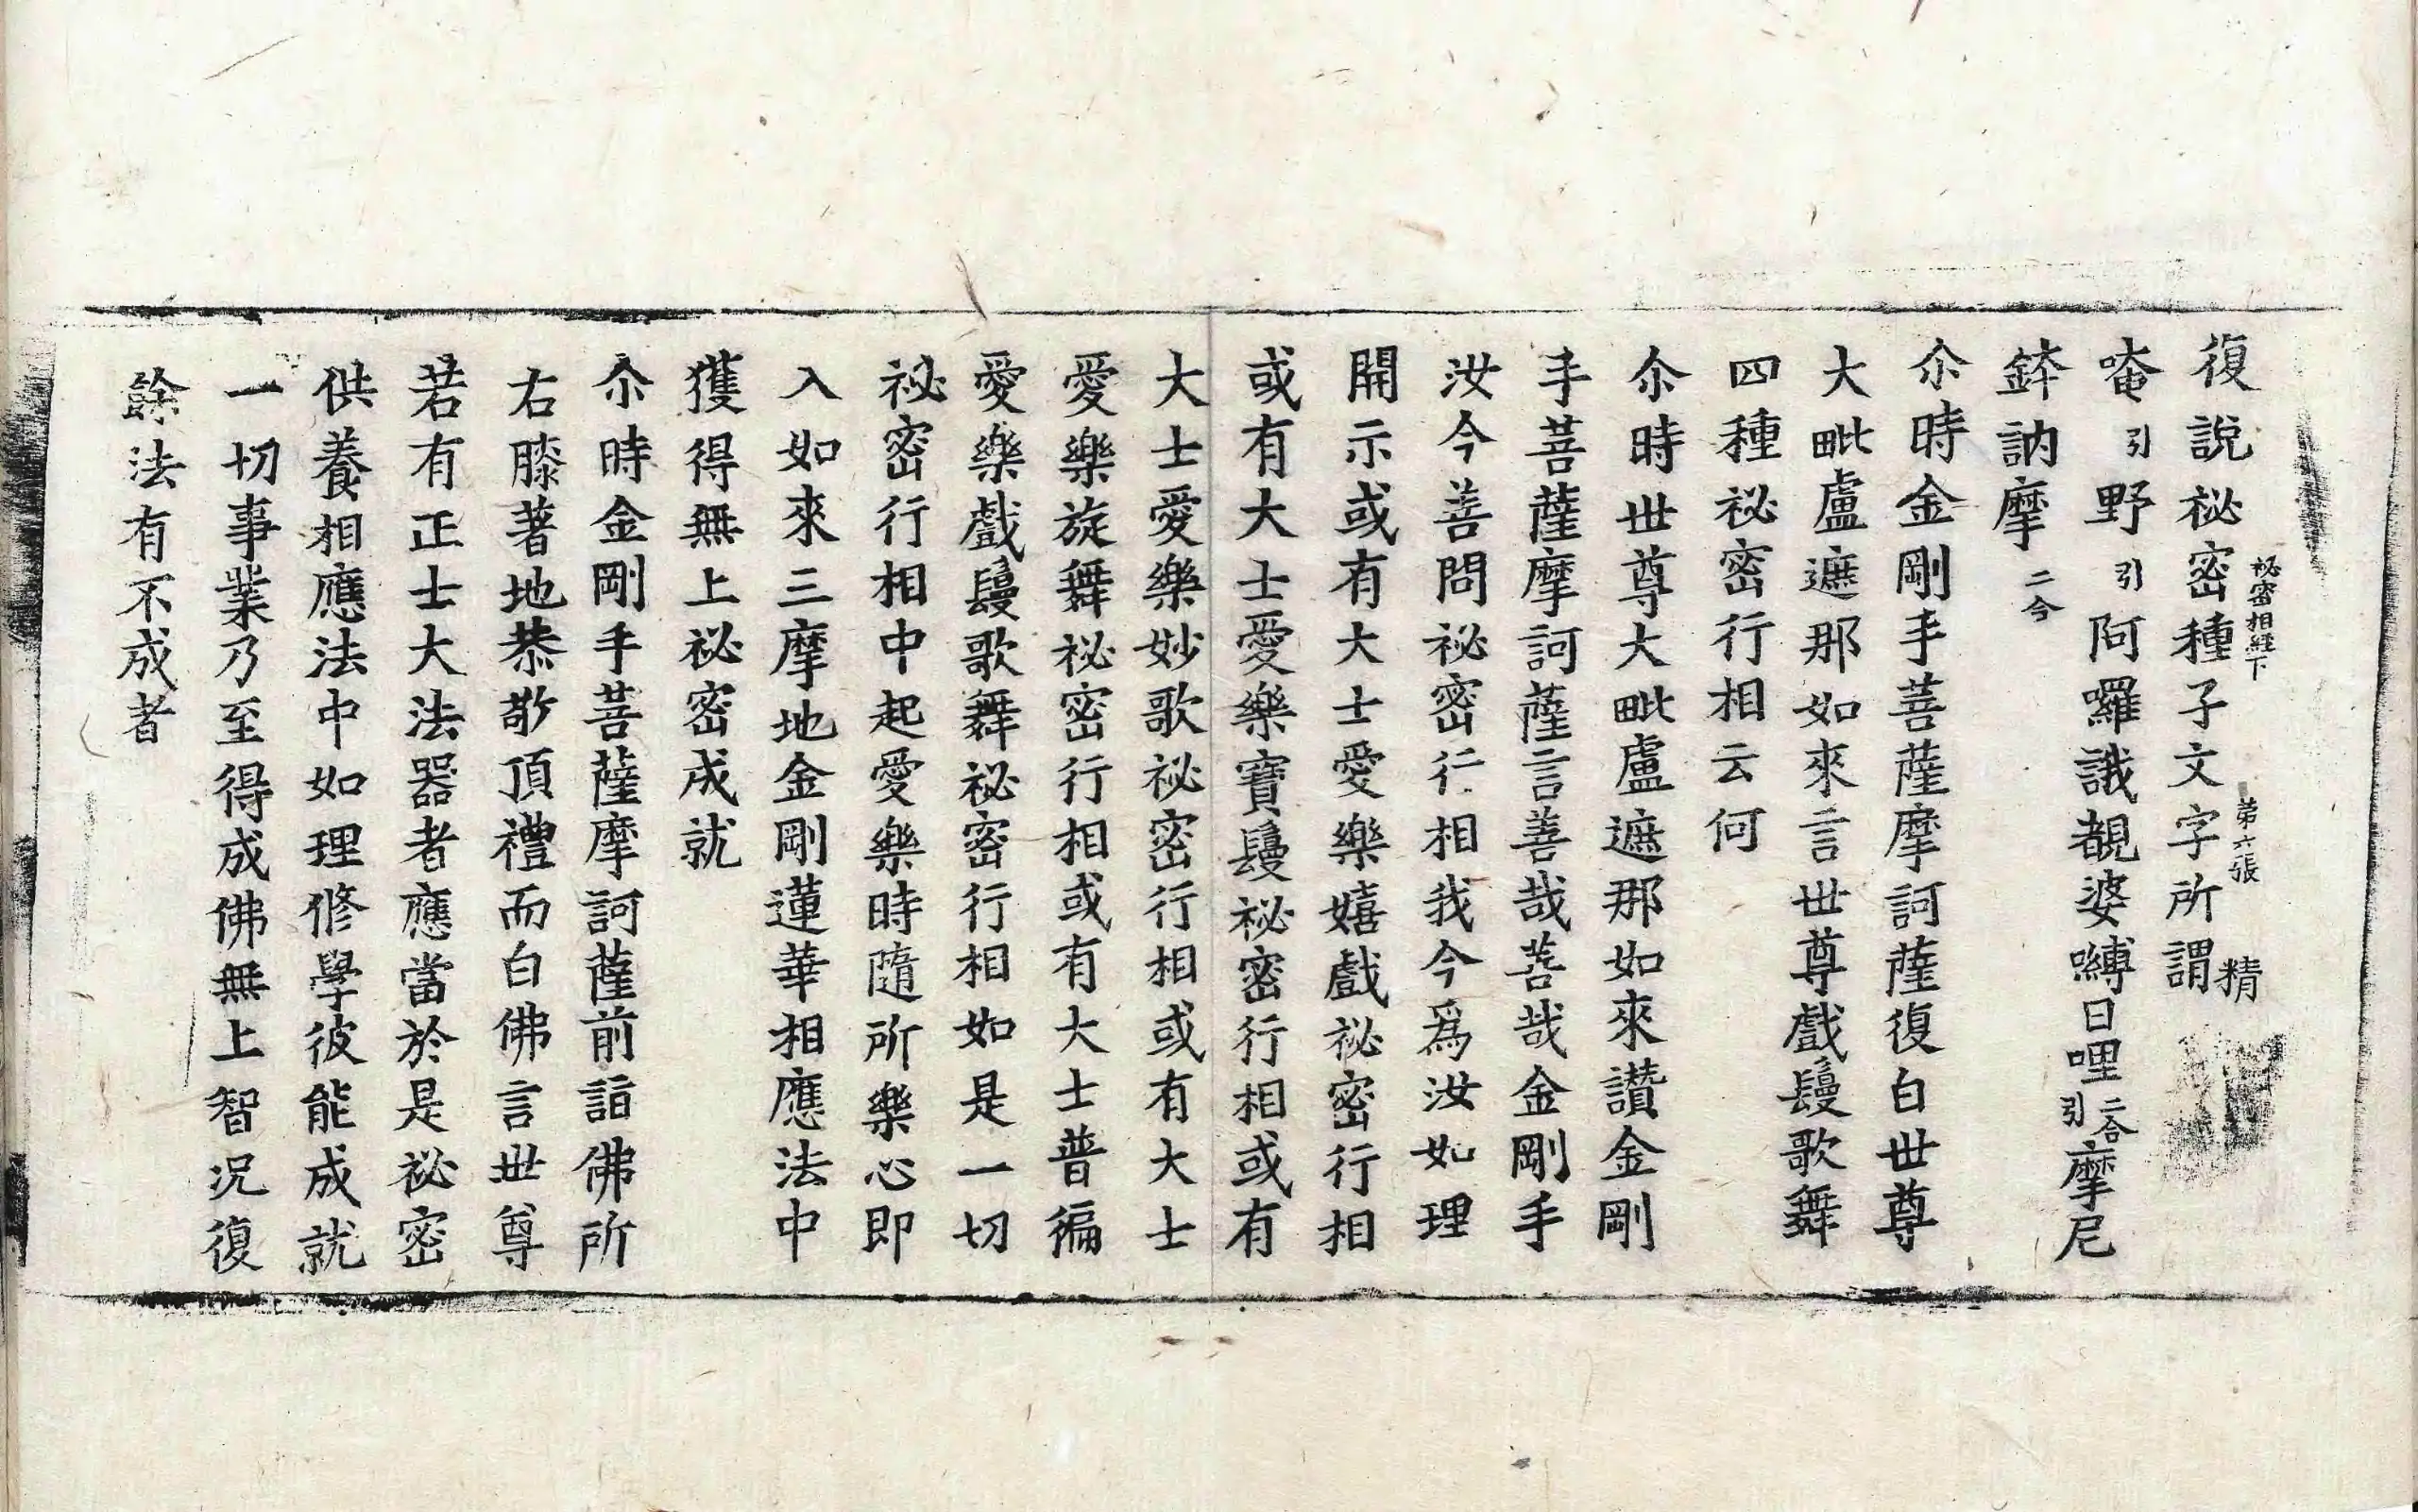 復說祕密種子文字所謂
秘密相經下　第六張　精
唵引野引阿囉誐覩婆嚩日哩二合引摩尼
鉢訥摩二合
尒時金剛手菩薩摩訶薩復白世尊
大毗盧遮那如來言世尊戲鬘歌舞
四種祕密行相云何
尒時世尊大毗盧遮那如來讚金剛
手菩薩摩訶薩言善哉善哉金剛手
汝今善問祕密行相我今爲汝如理
開示或有大士愛樂嬉戲祕密行相
或有大士愛樂寶鬘祕密行相或有
大士愛樂妙歌祕密行相或有大士
愛樂旋舞祕密行相或有大士普徧
愛樂戲鬘歌舞祕密行相如是一切
祕密行相中起愛樂時隨所樂心即
入如來三摩地金剛蓮華相應法中
獲得無上祕密成就
尒時金剛手菩薩摩訶薩前詣佛所
右膝著地恭敬頂禮而白佛言世尊
若有正士大法器者應當於是祕密
供養相應法中如理修學彼能成就
一切事業乃至得成佛無上智况復
餘法有不成者